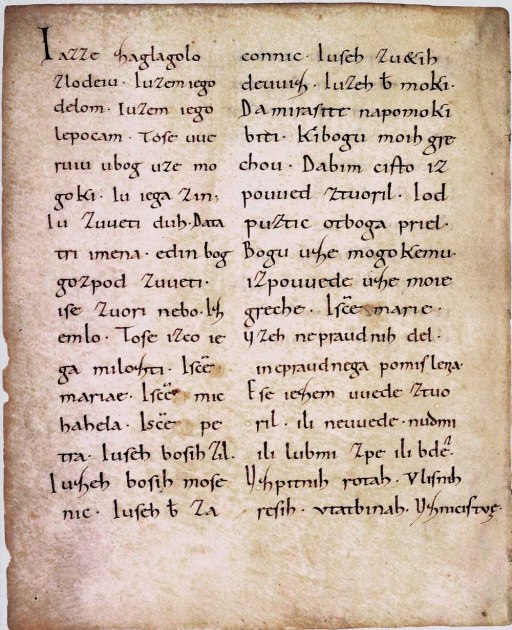 Iazze zaglagolo
zlodeiu · Iuzem iego
delom · Iuzem iego
lepocam · Tose uue
ruiu ubog uze mo
goki · Iu iega zin,
Iu zuueti duh · Data
tri imena · edin bog
gozpod zuueti ·
ise zuori nebo · Iz
emlo · Tose izco ie
ga milozti · Isce
mariae · Isce mic
hahela · Isce pe
tra · Iuseh bosih zil ·
Iuzeh bosih mose
nic · Iuseh b za
connic · Iuseh zu&ih
deuuiz · Iuzeh b moki ·
Da mirasite napomoki
biti · Kibogu moih gre
chou · Dabim cisto iz
pouued ztuoril · Iod
puztic otboga priel ·
Bogu uze mogokemu ·
izpouuede uze moie
greche · Isce marie ·
uzeh nepraudnih del ·
inepraudnega pomislena ·
Ese iezem uuede ztuo
ril · ili neuuede · nudmi
ili lubmi zpe ili bde ·
Uzpitnih rotah · Vlisnih
resih · vtatbinah · Uznicistuę ·